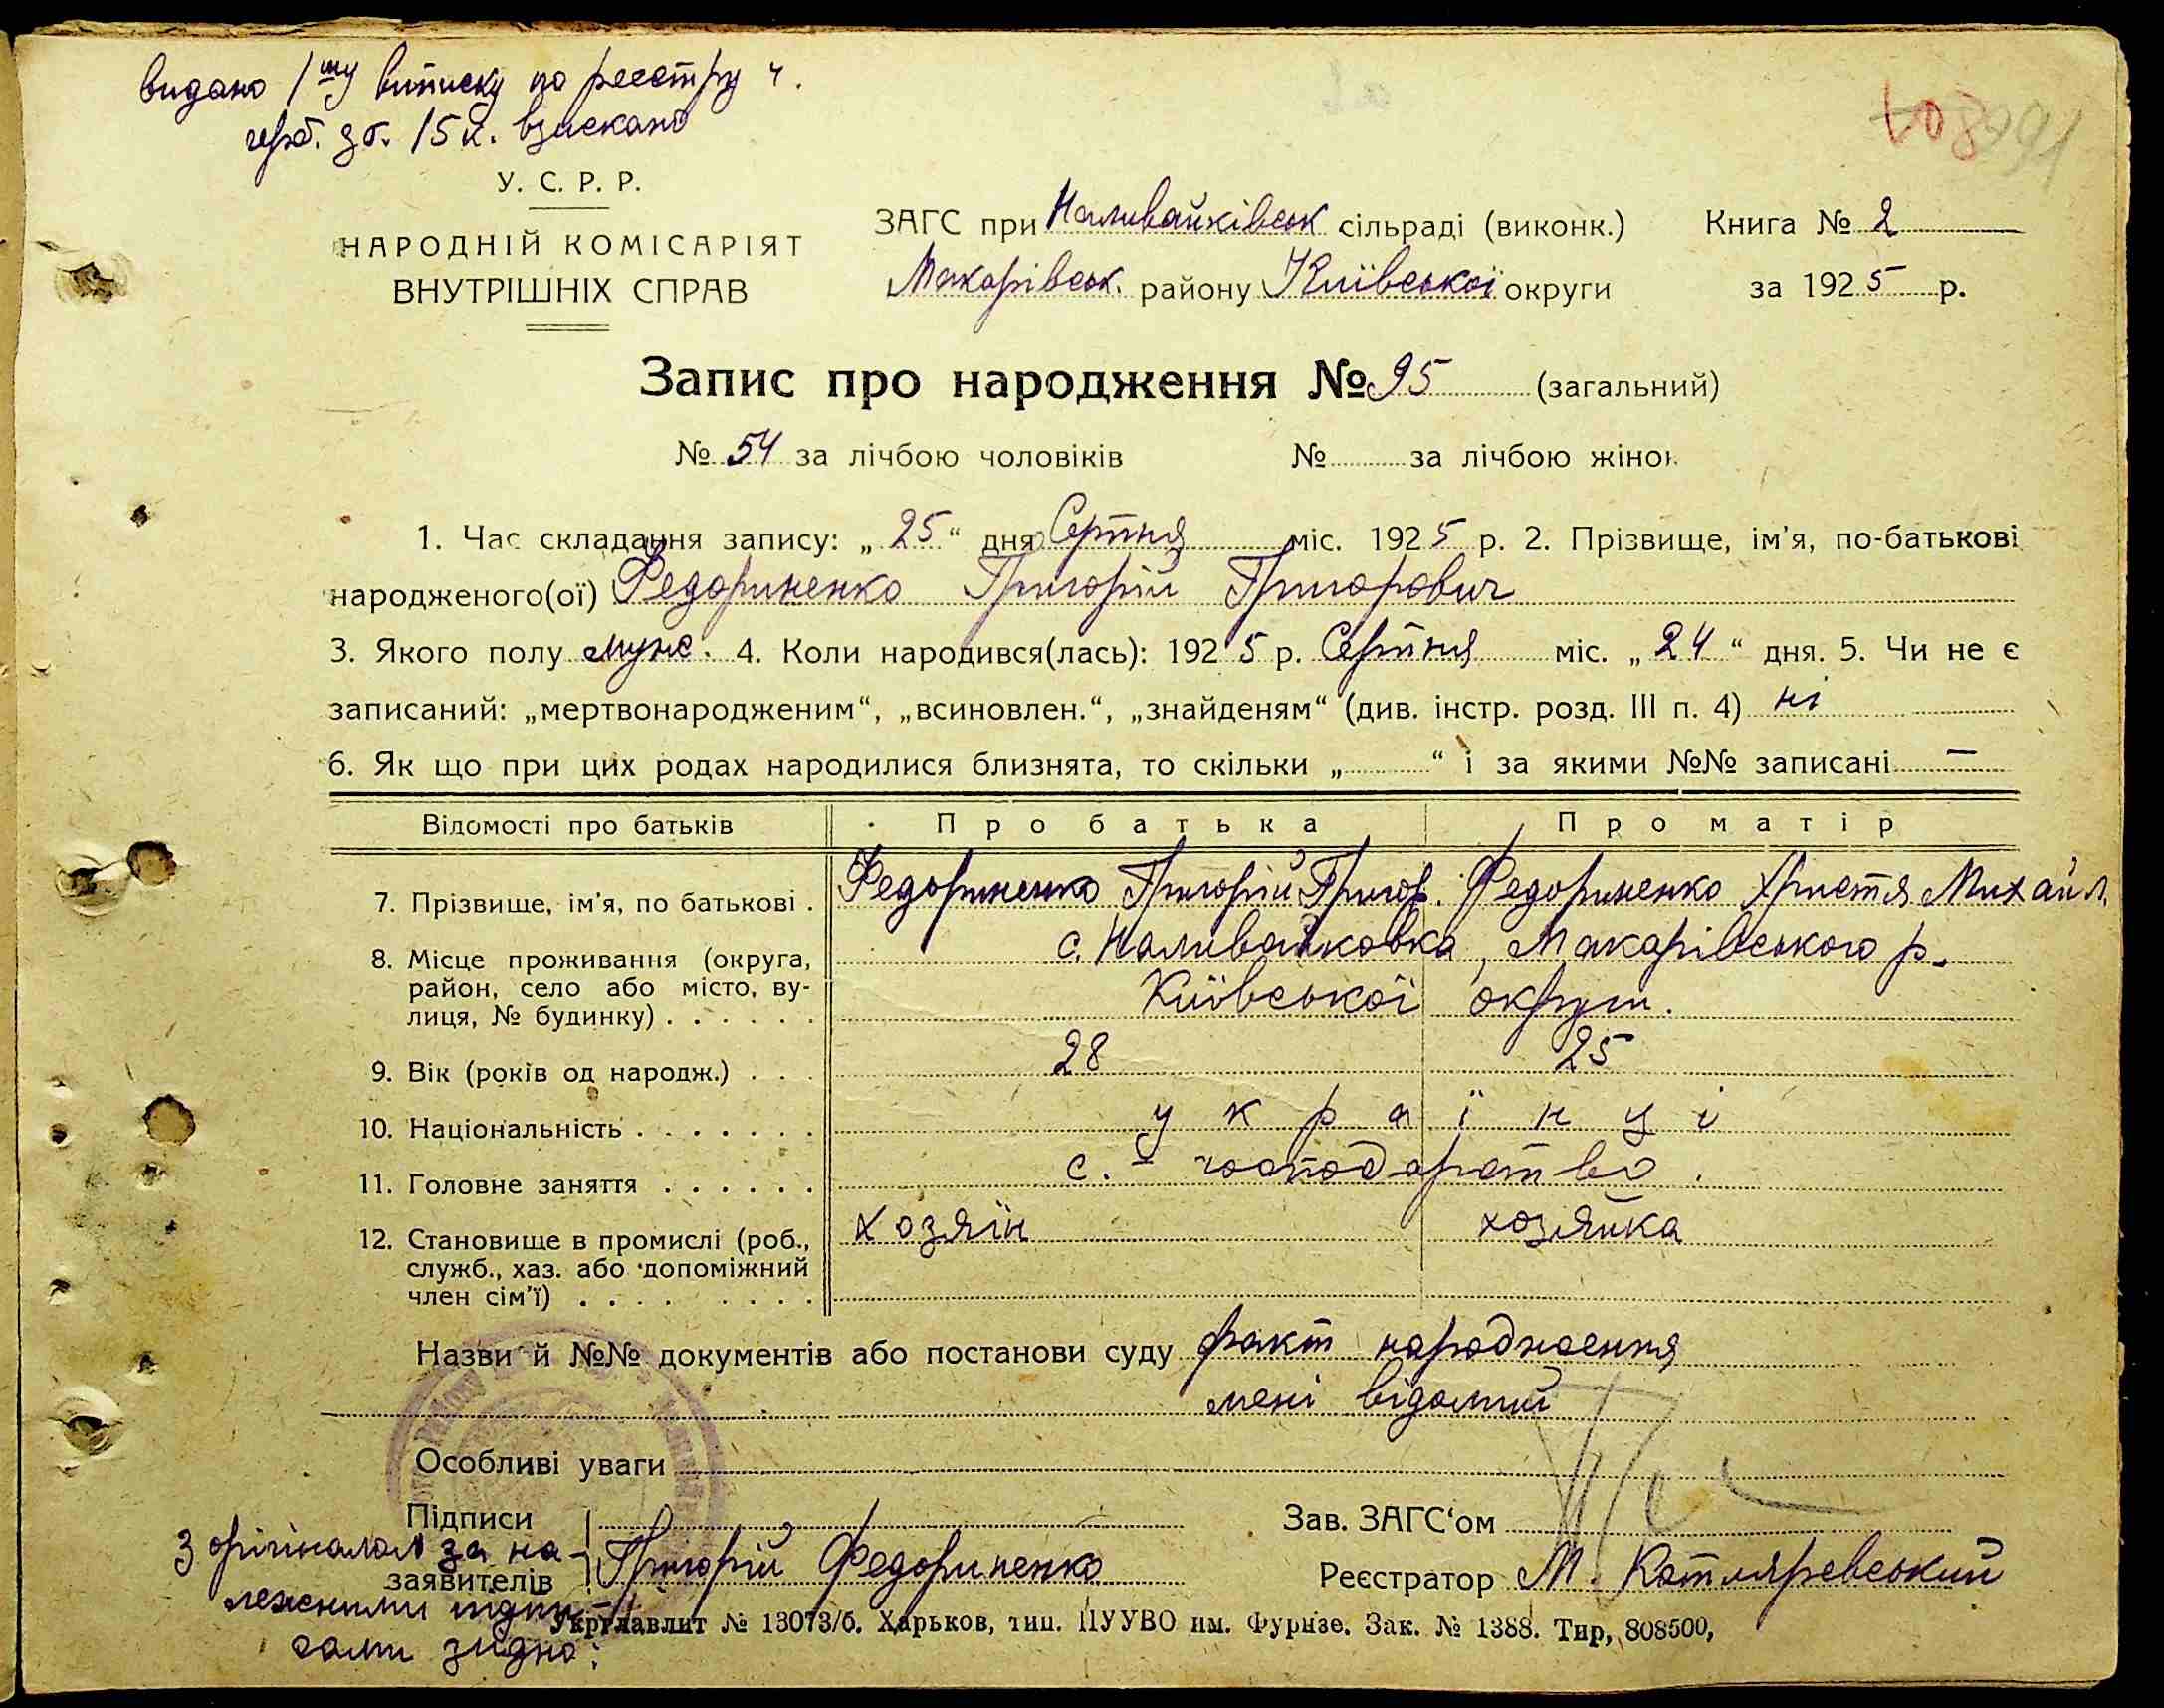 видано 1шу виписку по реєстру ч.
герб. зб. 15 к. взискано
У. С. Р. Р.
НАРОДНІЙ КОМІСАРІЯТ
ВНУТРІШНІХ СПРАВ
ЗАГС при Наливайківськ сільраді (виконк.) Книга № 2
Макарівськ. району Київської округи за 1925 р.
Запис про народження № 95 (загальний)
№ 54 за лічбою чоловіків № за лічбою жінок
1. Час складання запису: „25“ дня Серпня міс. 1925 р. 2. Прізвище, ім'я, по-батькові
народженого(ої) Федориненко Григорій Григорович
3. Якого полу муж. 4. Коли народився(лась): 1925 р. Серпня міс. „24“ дня. 5. Чи не є
записаний: „мертвонародженим“, „всиновлен.“, „знайденям“ (див. інстр. розд. III п. 4) ні
6. Як що при цих родах народилися близнята, то скільки „ “ і за якими №№ записані —
Відомості про батьків Про батька Про матір
7. Прізвище, ім'я, по батькові . Федориненко Григорій Григор. Федориненко Христя Михайл.
8. Місце проживання (округа, с. Наливайковка, Макарівського р.
район, село або місто, ву-
лиця, № будинку) . . . . . . Київської округи.
9. Вік (років од народж.) . . . 28 25
10. Національність . . . . . . . українці
11. Головне заняття . . . . . . с.-господарство.
12. Становище в промислі (роб., хозяін хозяйка
служб., хаз. або допоміжний
член сім'ї) . . . . . . . .
Назви й №№ документів або постанови суду факт народження
мені відомий
Особливі уваги
Підписи
заявителів Григорій Федориненко
Зав. ЗАГС'ом
Реєстратор М. Котляревський
З орігіналом за на-
лежними підпи-
сами згідно:
Укрглавлит № 13073/б. Харьков, тип. ЦУУВО им. Фрунзе. Зак. № 1388. Тир, 808500,